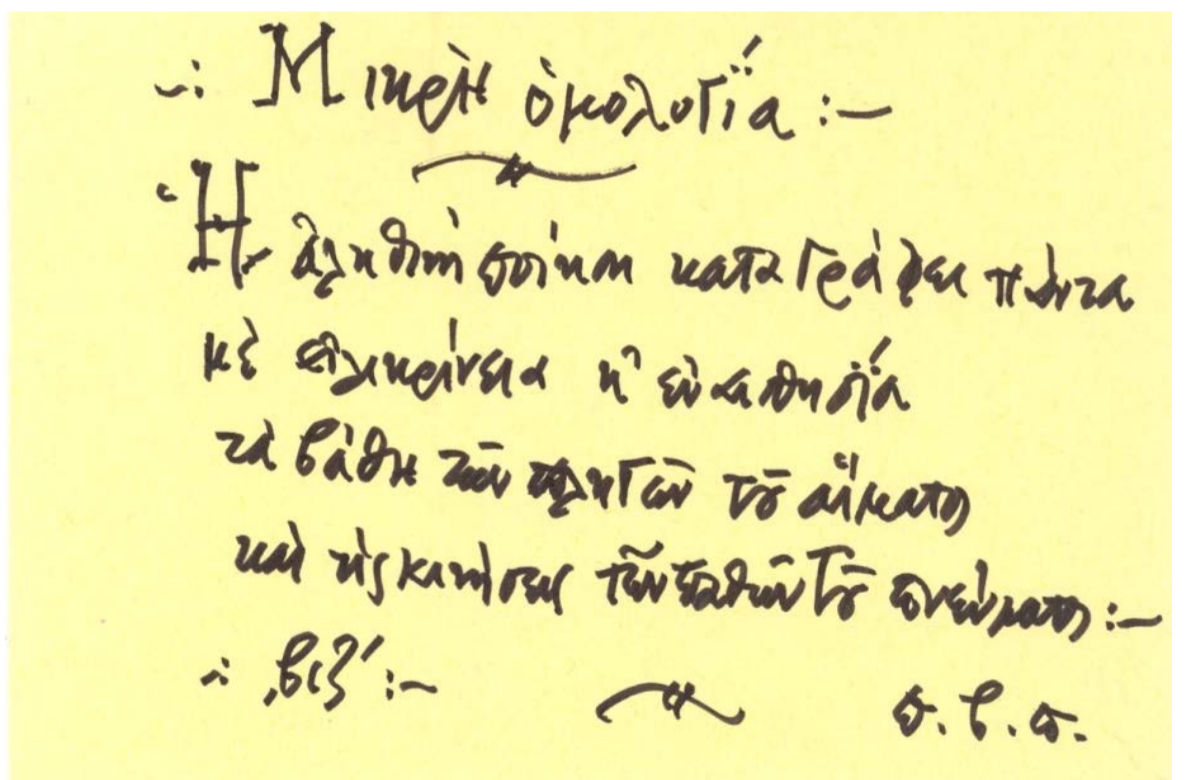 ~: Μικρὴ ὁμολογία :~
Ἡ ἀληθινὴ ποίηση καταγράφει πάντα
μὲ εἰλικρίνεια κ' εὐαισθησία
τὰ βάθη τῶν πληγῶν τοῦ αἵματος
καὶ τὶς κινήσεις τῶν παθῶν τοῦ πνεύματος :~
~: ͵βιζ΄ :~ σ. β. σ.